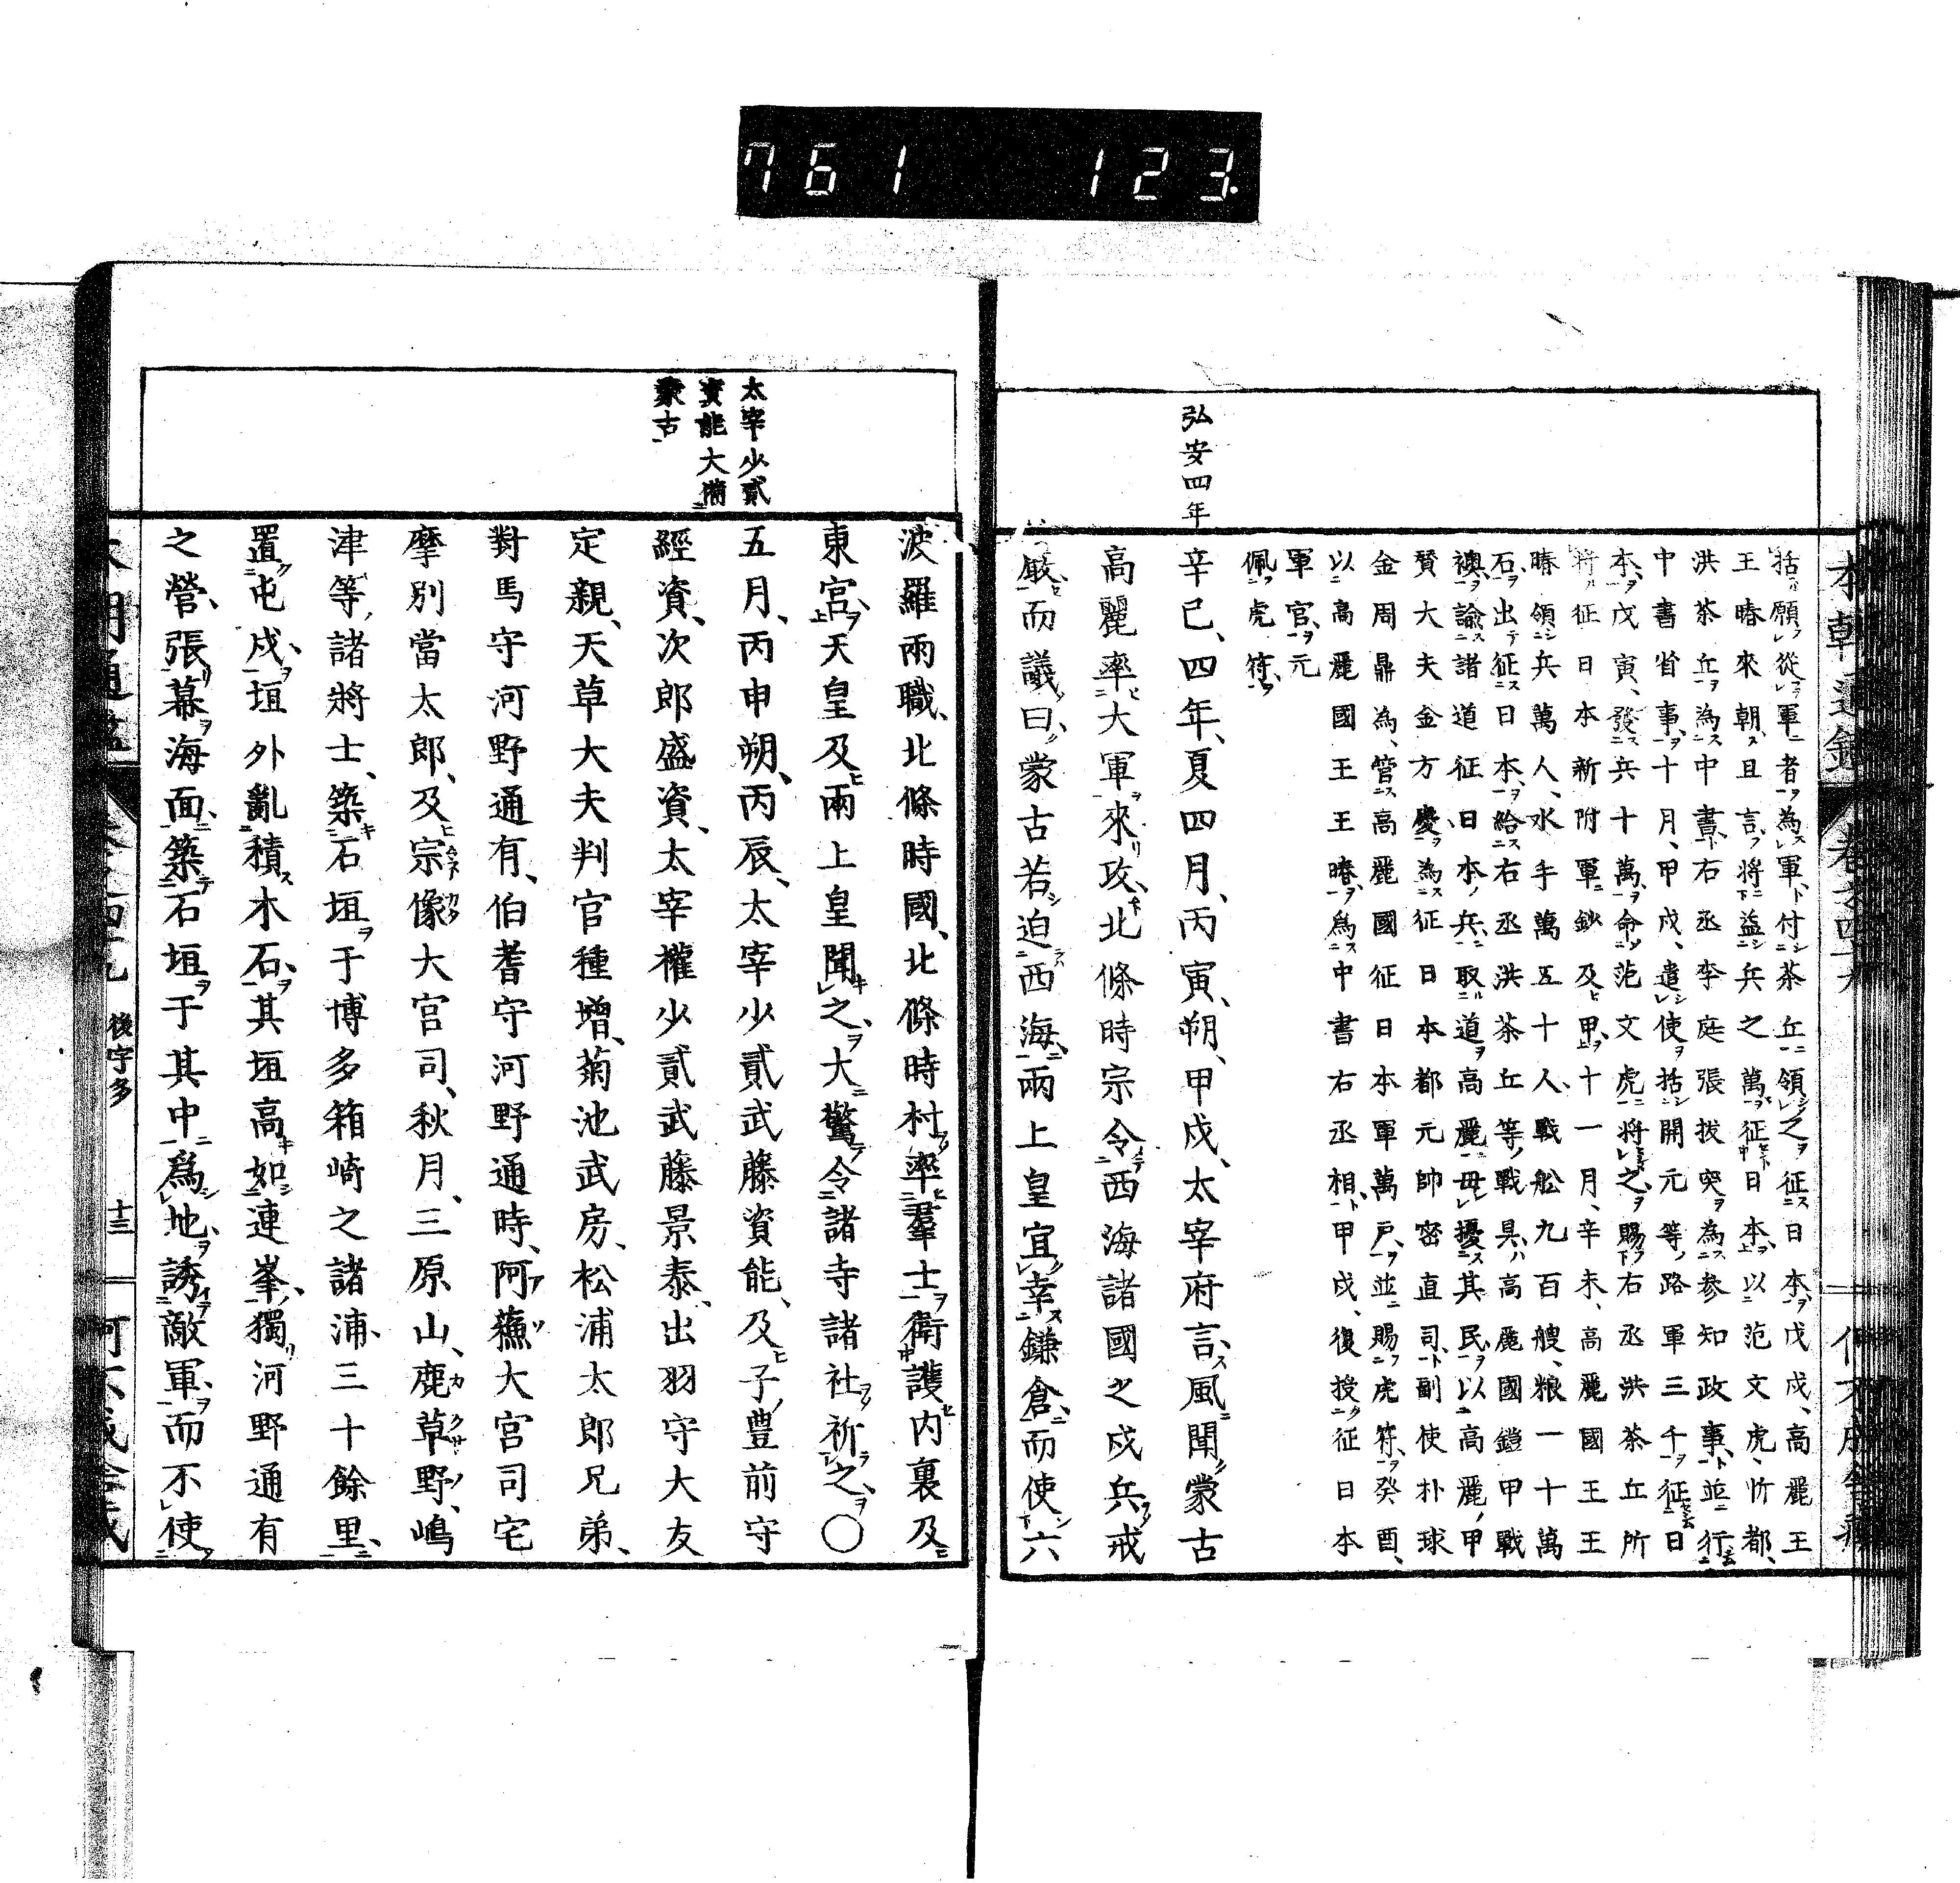 761 123.
弘安四年
括願從軍者為軍付茶丘領之征日本戊戌高麗王
王睶來朝且言將益兵之萬征日本以范文虎忻都
洪茶丘為中書右丞李庭張拔突為參知政事並行
中書省事十月甲戌遣使括開元等路軍三千征日
本戊寅發兵十萬命范文虎將之賜右丞洪茶丘所
將征日本新附軍鈔及甲十一月辛未高麗國王王
睶領兵萬人水手萬五十人戰舩九百艘粮一十萬
石出征日本給右丞洪茶丘等戰具高麗國鎧甲戰
襖諭諸道征日本兵取道高麗毋擾其民以高麗甲
賛大夫金方慶為征日本都元帥密直司副使朴球
金周鼎為管高麗國征日本軍萬戸並賜虎符癸酉
以高麗國王王睶為中書右丞相甲戌復授征日本
軍官元
佩虎符
辛巳四年夏四月丙寅朔甲戌太宰府言風聞蒙古
高麗率大軍來攻北條時宗令西海諸國之戍兵戒
嚴而議曰蒙古若迫西海兩上皇宜幸鎌倉而使六
太宰少貳
資能大備
蒙古
波羅兩職北條時國北條時村率羣士衛護内裏及
東宮天皇及兩上皇聞之大驚令諸寺諸社祈之〇
五月丙申朔丙辰太宰少貳武藤資能及子豊前守
經資次郎盛資太宰權少貳武藤景泰出羽守大友
定親天草大夫判官種增菊池武房松浦太郎兄弟
對馬守河野通有伯耆守河野通時阿蘓大宮司宅
摩別當太郎及宗像大宮司秋月三原山鹿草野嶋
津等諸將士築石垣于博多箱崎之諸浦三十餘里
置屯戍垣外亂積木石其垣高如連峯獨河野通有
之營張幕海面築石垣于其中爲地誘敵軍而不使
後宇多 十三